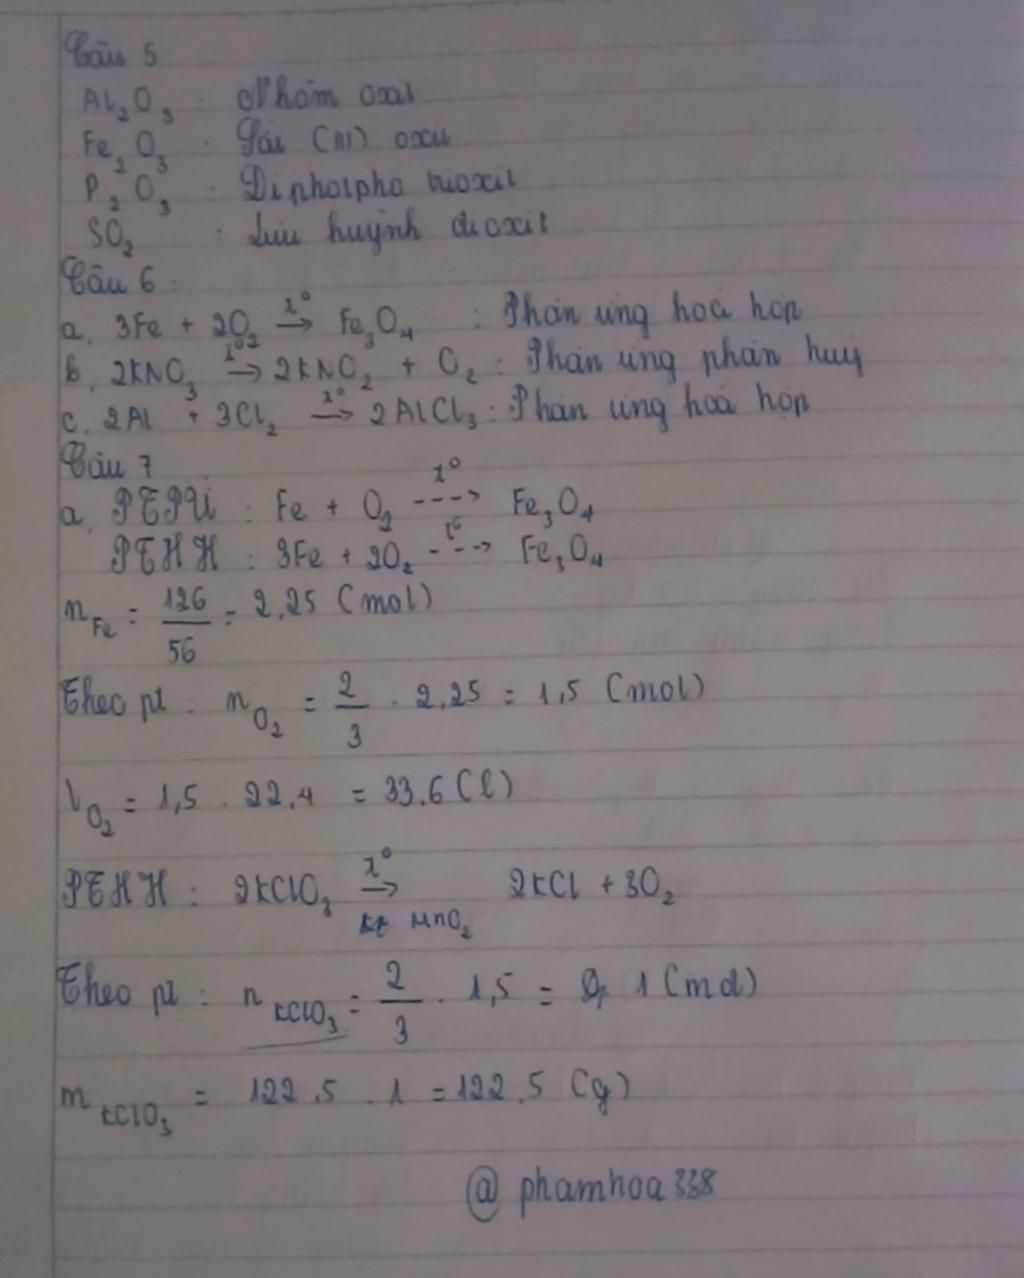 Câu 5
Al₂O₃ : Nhôm oxit
Fe₂O₃ : Sắt (III) oxit
P₂O₃ : Điphotpho trioxit
SO₂ : Lưu huỳnh đioxit
Câu 6 :
a, 3Fe + 2O₂ t°→ Fe₃O₄ : Phản ứng hoá hợp
b, 2KNO₃ t°→ 2KNO₂ + O₂ : Phản ứng phân huỷ
c, 2Al + 3Cl₂ t°→ 2AlCl₃ : Phản ứng hoá hợp
Câu 7
a, PTPƯ : Fe + O₂ t°---> Fe₃O₄
PTHH : 3Fe + 2O₂ t°---> Fe₃O₄
n Fe = 126/56 = 2,25 (mol)
Theo pt : n O₂ = 2/3 . 2,25 = 1,5 (mol)
V O₂ = 1,5 . 22,4 = 33,6 (l)
PTHH : 2KClO₃ t°→ kt MnO₂ 2KCl + 3O₂
Theo pt : n KClO₃ = 2/3 . 1,5 = 1 (mol)
m KClO₃ = 122,5 . 1 = 122,5 (g)
@ phamhoa338